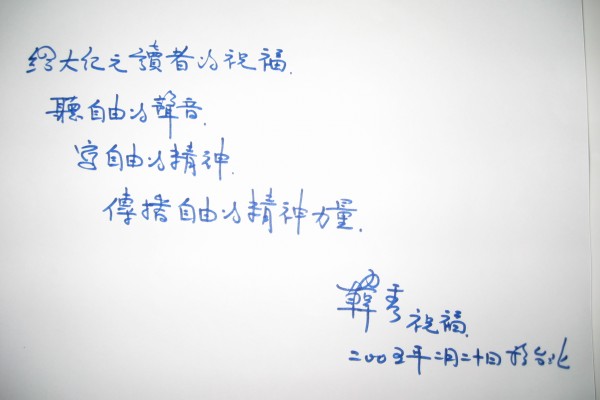 給大紀元讀者的祝福.
聽自由的聲音.
寫自由的精神.
傳播自由的精神力量.
韓秀祝福
二〇〇五年二月二十日於台北